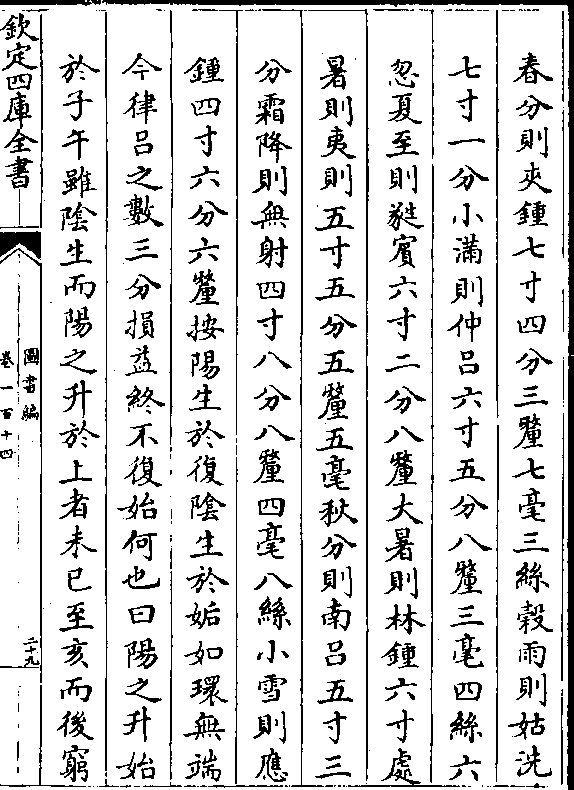 春分則夾鍾七寸四分三釐七毫三絲穀雨則姑洗
七寸一分小滿則仲吕六寸五分八釐三毫四絲六
忽夏至則蕤賓六寸二分八釐大暑則林鍾六寸處
暑則夷則五寸五分五釐五毫秋分則南吕五寸三
分霜降則無射四寸八分八釐四毫八絲小雪則應
鍾四寸六分六釐按陽生於復陰生於姤如環無端
今律吕之數三分損益終不復始何也曰陽之升始
於子午雖陰生而陽之升於上者未已至亥而後窮
欽定四庫全書
圖書編
卷一百十四
二十九